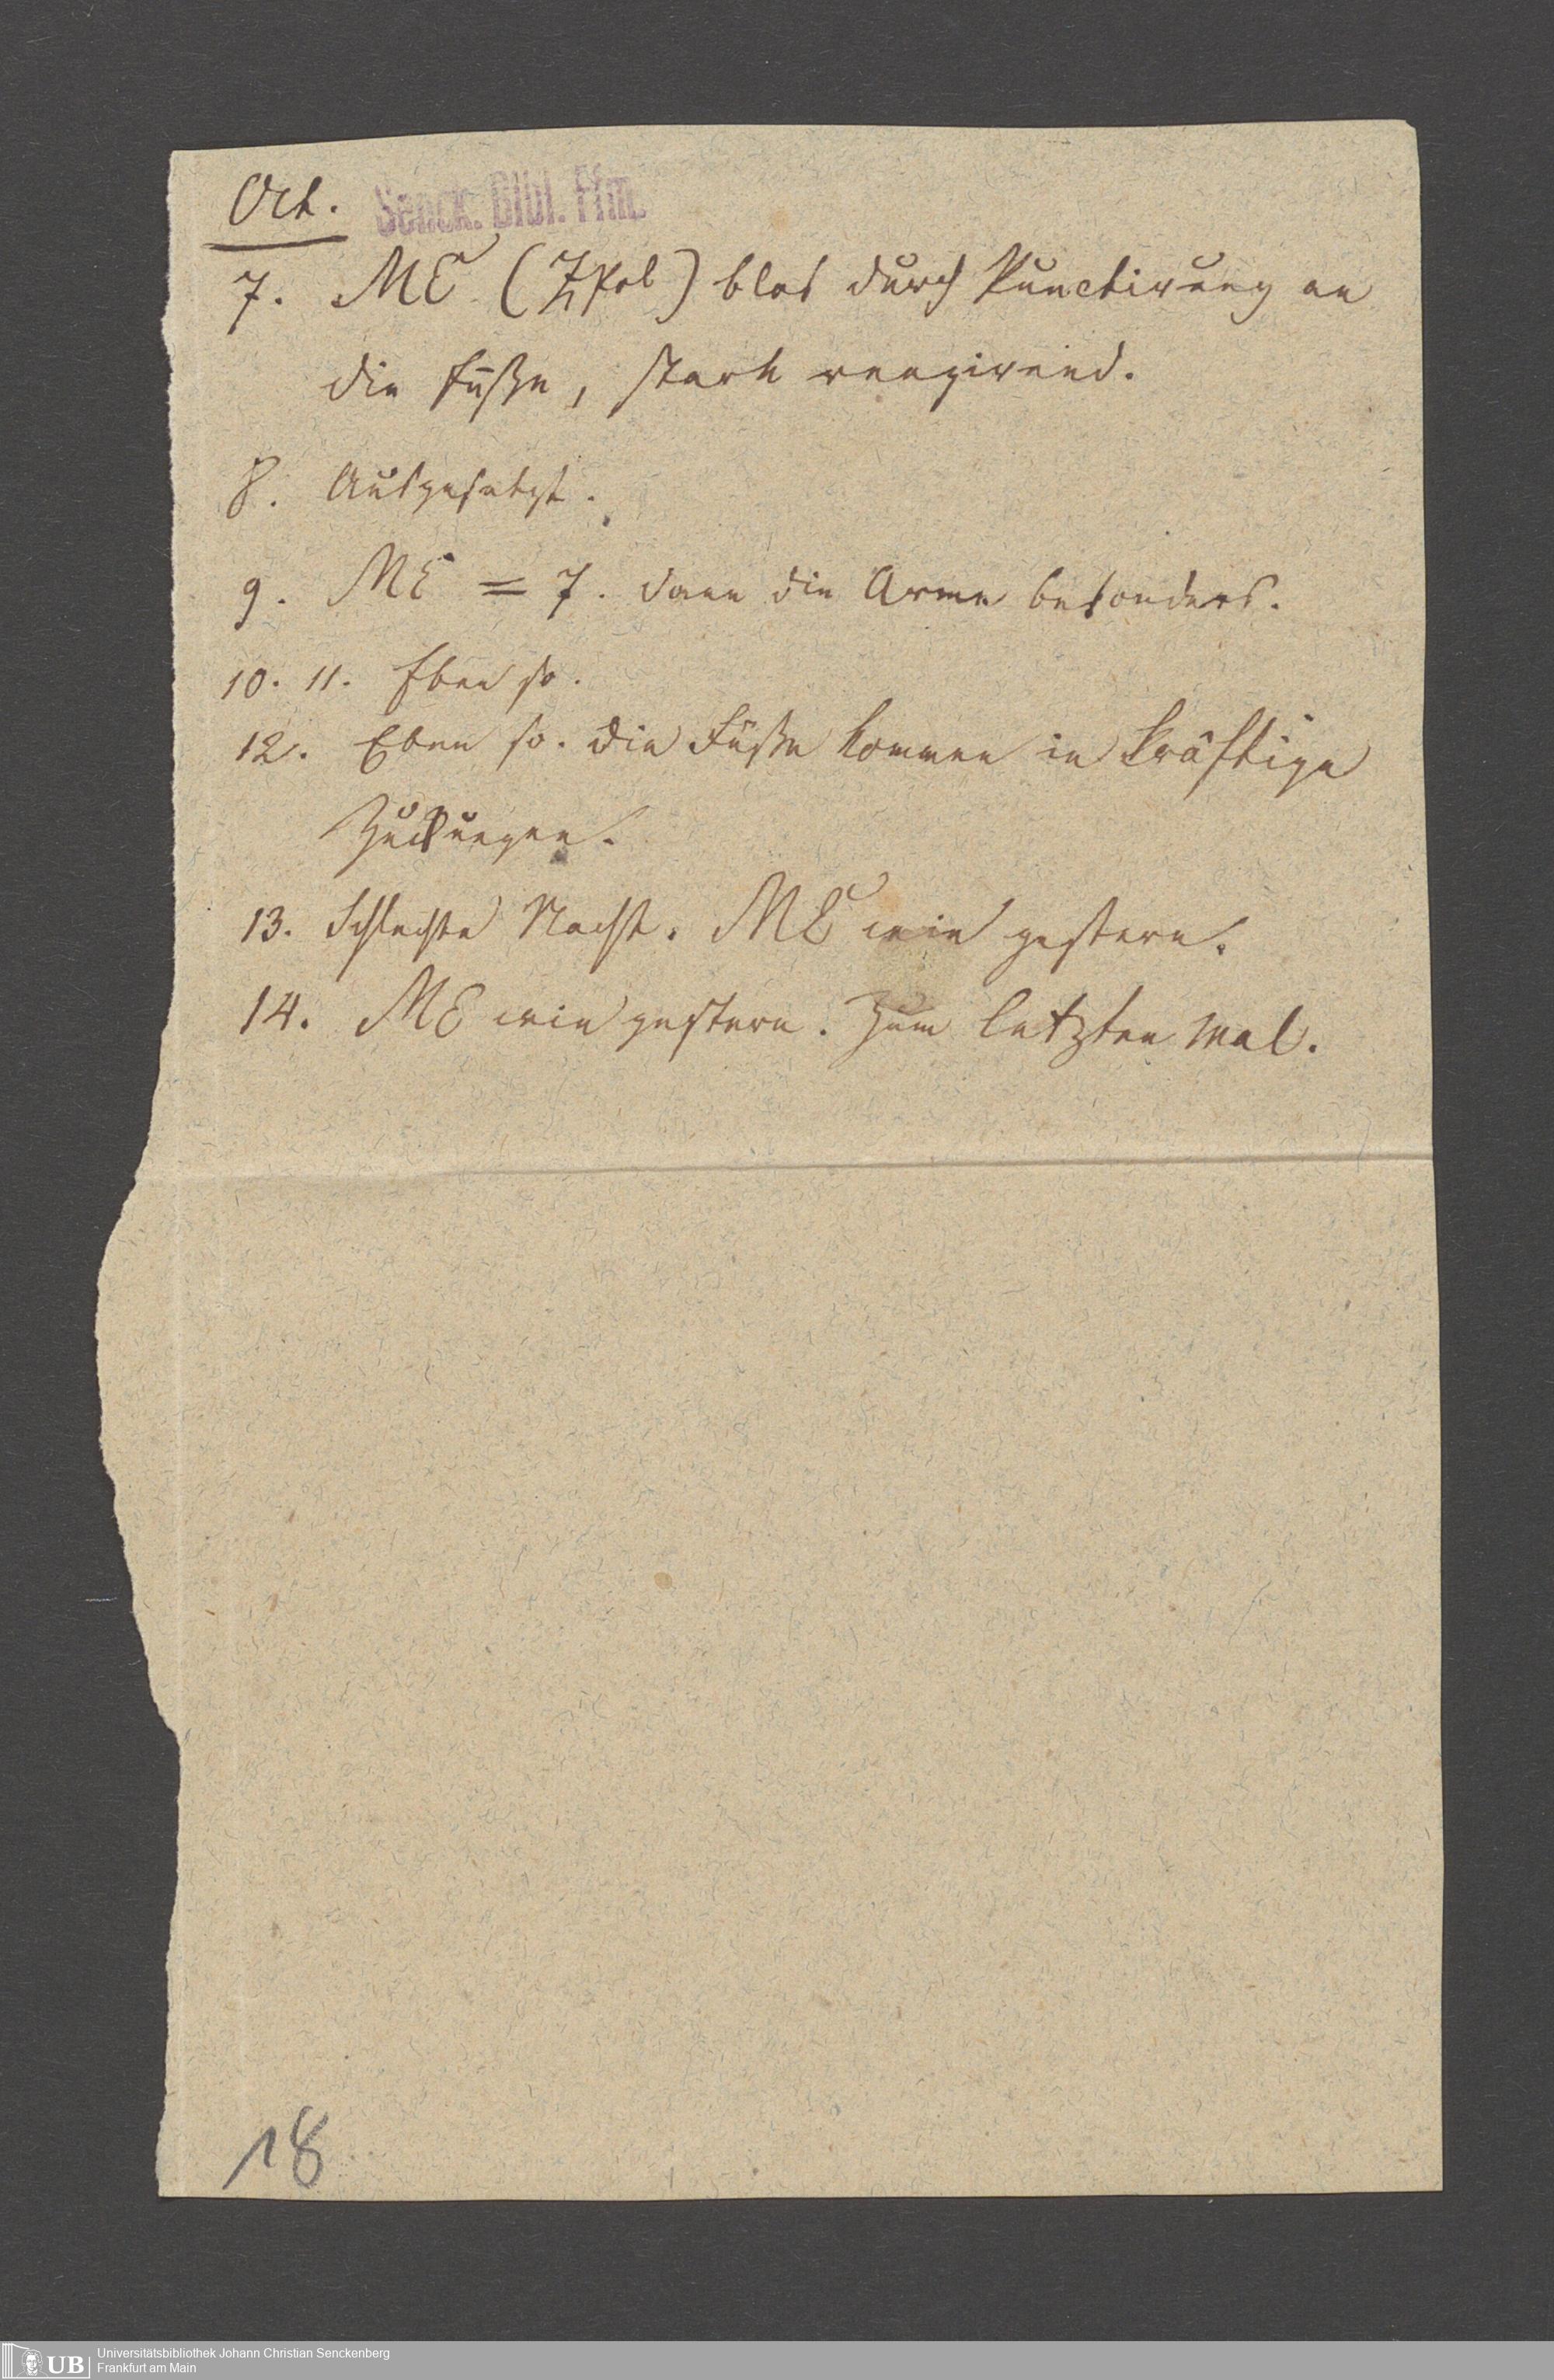 Oct. Senck. Bibl. Ffm.
7. ME (ZPol) blos durch Punctirung an
die Füße, stark reagirend.
8. Ausgesetzt.
9. ME = 7. dann die Arme besonders.
10. 11. Eben so.
12. Eben so. Die Füße kommen in kräftige
Zuckungen.
13. Schlechte Nacht. ME wie gestern.
14. ME wie gestern. Zum letzten Mal.
18
UB Universitätsbibliothek Johann Christian Senckenberg
Frankfurt am Main